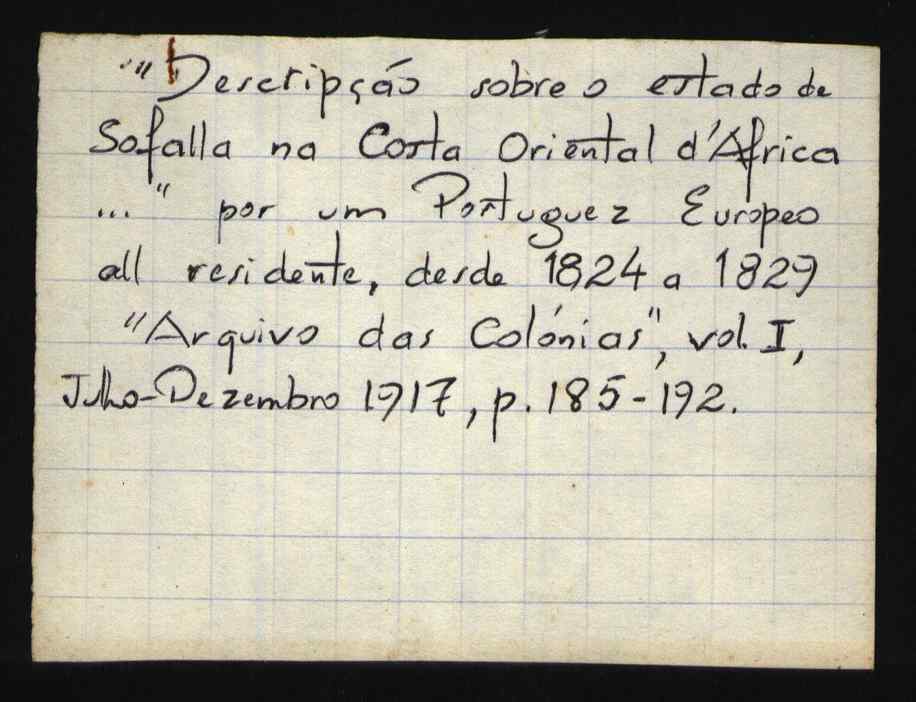 "Descripção sobre o estado de
Sofalla na Costa Oriental d'Africa
..." por um Portuguez Europeo
all residente, desde 1824 a 1829
"Arquivo das Colónias", vol. I,
Julho-Dezembro 1917, p. 185-192.